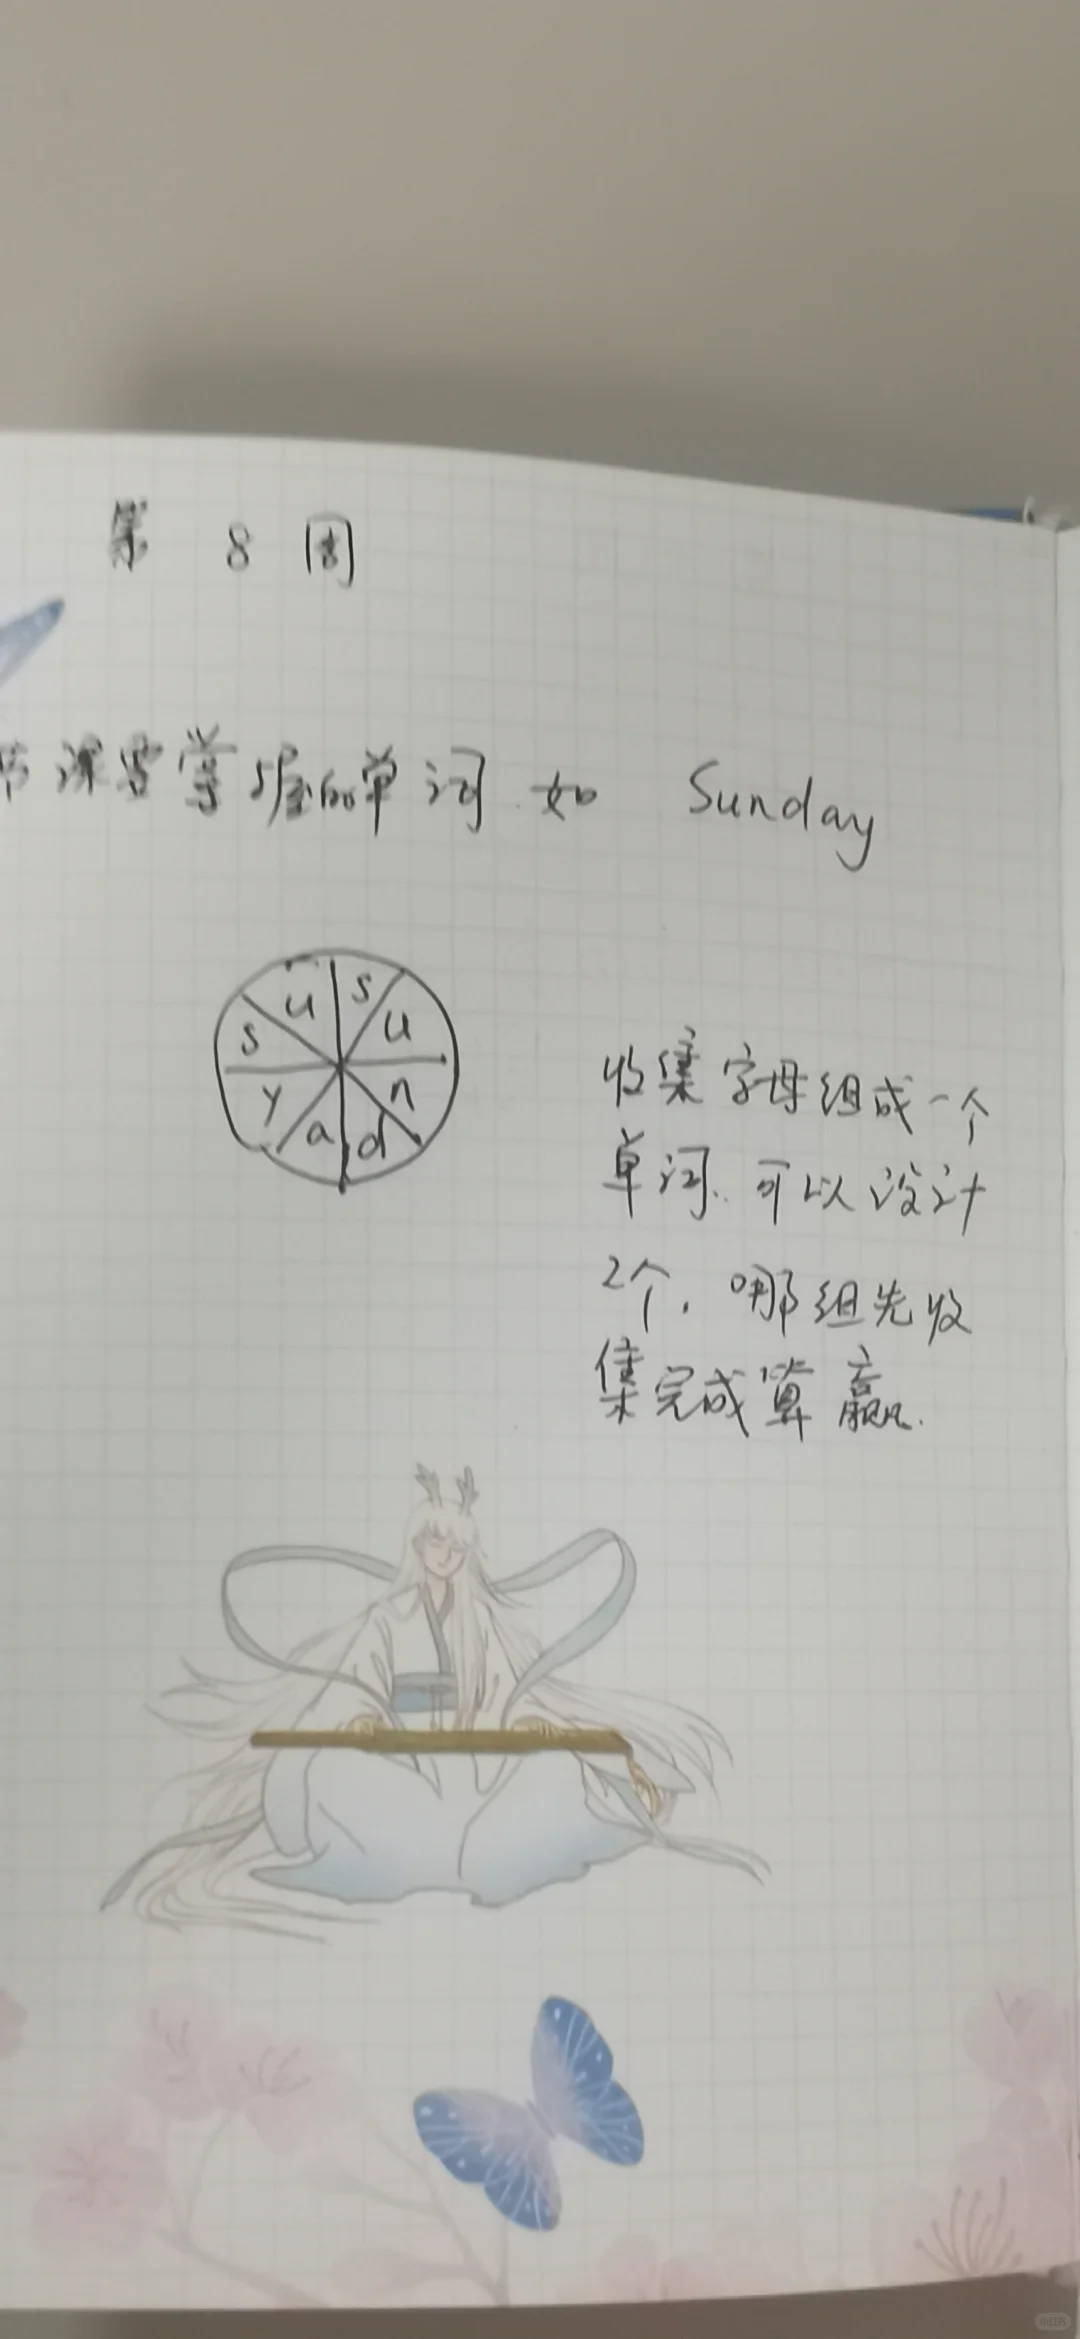 第 8 周
节课要掌握的单词 如 Sunday
u s
s u
y n
a d
收集字母组成一个
单词. 可以设计
2个. 哪组先收
集完成算赢.